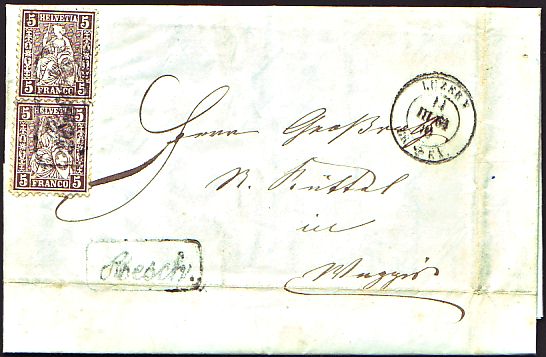 5 HELVETIA 5
5 FRANCO 5
5 HELVETIA 5
5 FRANCO 5
LUZERN
11
Herrn Großra
N. Küttel
in
Weggis